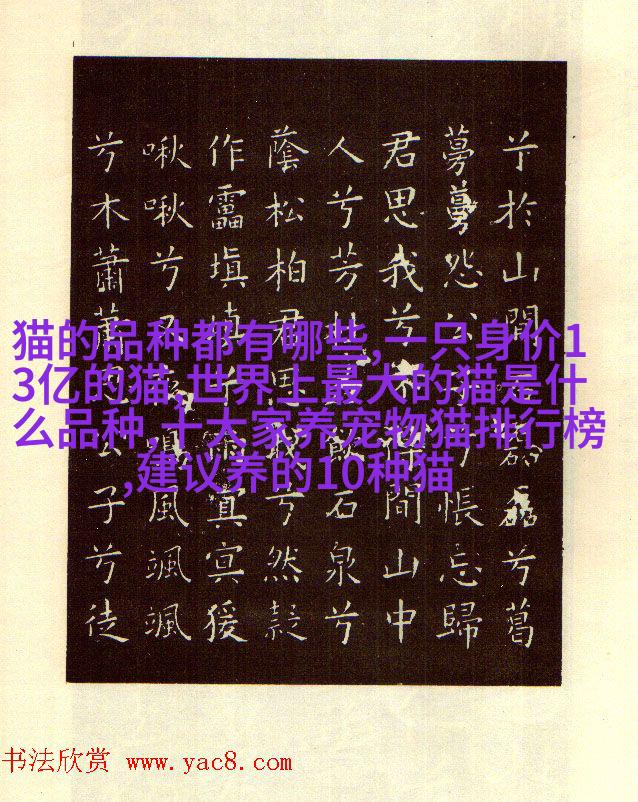 猫的品种都有哪些,一只身价1
3亿的猫,世界上最大的猫是什
么品种,十大家养宠物猫排行榜
,建议养的10种猫
兮於山間磊磊兮葛
蔓蔓怨公子兮悵忘歸
君思我兮不得間山中
人兮芳飲石泉兮
蔭松柏君思我兮然疑
作靁填填兮雨冥冥猨
啾啾兮又鳴風颯颯
兮木蕭蕭公子兮徒
书法欣赏 www.yac8.com